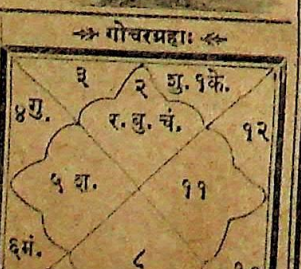 गोचरग्रहाः
३ २ शु. १ के.
४ गु. र. बु. चं. १२
५ श. ११
६ मं. ८